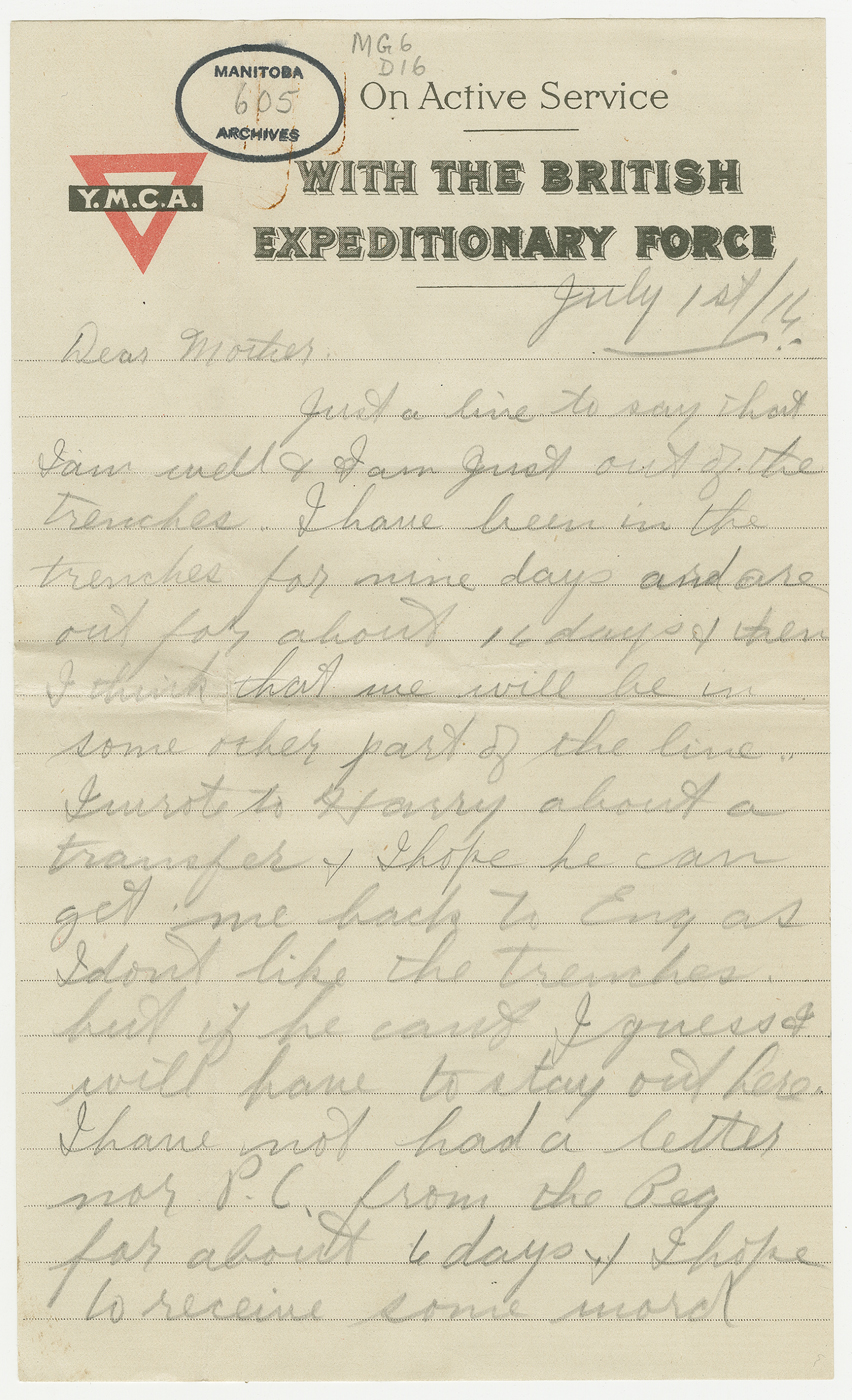 MG6
D16
MANITOBA
605
ARCHIVES
On Active Service
Y.M.C.A.
WITH THE BRITISH
EXPEDITIONARY FORCE
July 1st/16
Dear Mother.
Just a line to say that
I am well & I am just out of the
trenches. I have been in the
trenches for nine days and are
out for about 16 days & then
I think that we will be in
some other part of the line.
I wrote to Harry about a
transfer & I hope he can
get me back to Eng as
I dont like the trenches.
but if he cant I guess I
will have to stay out here.
I have not had a letter
nor P.C. from the Peg
for about 6 days & I hope
to receive some word